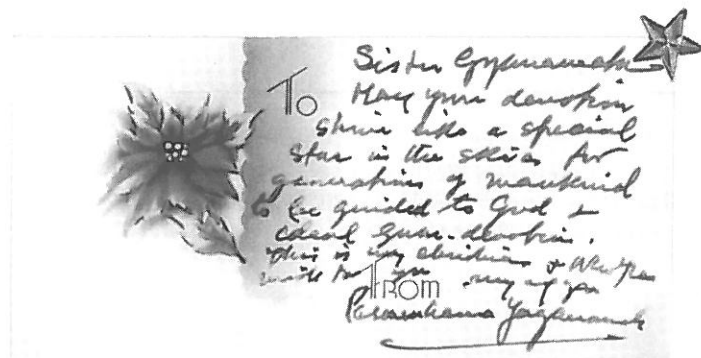 Sister Gyanamata
To May your devotion
shine like a special
star in the skies for
generations of mankind
to be guided to God &
ideal guru-devotion.
This is my christmas & New Year
wish to you
From
Paramhansa Yogananda